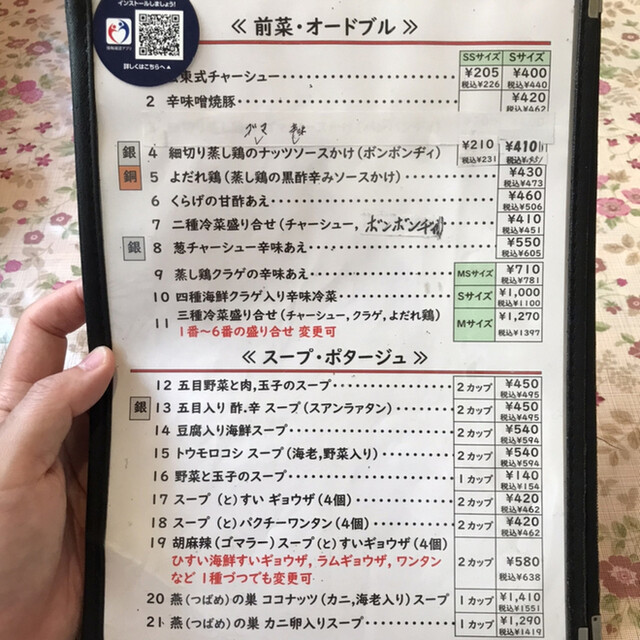 インストールしましょう!
詳しくはこちらへ▲
≪ 前菜・オードブル ≫
SSサイズ Sサイズ
東式チャーシュー ¥205 税込¥226 ¥400 税込¥440
2 辛味噌焼豚 ¥420 税込¥462
ゴマ
銀 4 細切り蒸し鶏のナッツソースかけ(ボンボンヂィ) ¥210 税込¥231 ¥410
銅 5 よだれ鶏(蒸し鶏の黒酢辛みソースかけ) ¥430 税込¥473
6 くらげの甘酢あえ ¥460 税込¥506
7 二種冷菜盛り合せ(チャーシュー, ボンボンヂィ) ¥410 税込¥451
銀 8 葱チャーシュー辛味あえ ¥550 税込¥605
9 蒸し鶏クラゲの辛味あえ MSサイズ ¥710 税込¥781
10 四種海鮮クラゲ入り辛味冷菜 Sサイズ ¥1,000 税込¥1100
11 三種冷菜盛り合せ(チャーシュー,クラゲ,よだれ鶏) Mサイズ ¥1,270 税込¥1397
1番~6番の盛り合せ 変更可
≪ スープ・ポタージュ ≫
12 五目野菜と肉,玉子のスープ 2カップ ¥450 税込¥495
銀 13 五目入り 酢.辛 スープ(スアンラァタン) 2カップ ¥450 税込¥495
14 豆腐入り海鮮スープ 2カップ ¥540 税込¥594
15 トウモロコシ スープ(海老,野菜入り) 2カップ ¥540 税込¥594
16 野菜と玉子のスープ 1カップ ¥140 税込¥154
17 スープ (と)すい ギョウザ(4個) 2カップ ¥420 税込¥462
18 スープ (と)パクチーワンタン(4個) 2カップ ¥420 税込¥462
19 胡麻辣(ゴマラー)スープ(と)すいギョウザ(4個) 2カップ ¥580 税込¥638
ひすい海鮮すいギョウザ, ラムギョウザ, ワンタン
など 1種づつでも変更可
20 燕(つばめ)の巣 ココナッツ(カニ,海老入り)スープ 1カップ ¥1,410 税込¥1551
21 燕(つばめ)の巣 カニ卵入りスープ 1カップ ¥1,290 税込¥1419